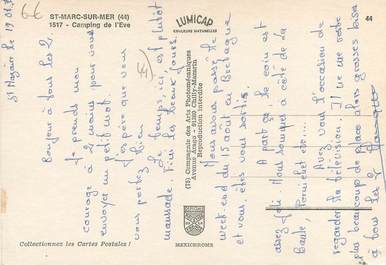 6€
ST-MARC-SUR-MER (44)
1517 - Camping de l'Eve
LUMICAP
COULEURS NATURELLES
44
St Nazaire le 19
Bonjour à tous les 2
Je prends mon
courage à 2 mains pour vous
envoyer un petit mot.
J'espère que vous
vous portez bien
Le temps, ici, est plutôt
maussade
jours
Nous avons passé le
week end du 15 août en Bretagne
et vous, êtes vous sortis
A part ça le coin est
assez joli. Nous sommes à côté de La
Baule, Pornichet etc...
Avez vous l'occasion de
regarder la télévision. Il ne me reste
plus beaucoup de place alors grosses bises
à tous les 2
(75) Commande des Arts Photomécaniques
Avenue Arago - 91380 Chilly-Mazarin
Reproduction interdite
MEXICHROME
Collectionnez les Cartes Postales !